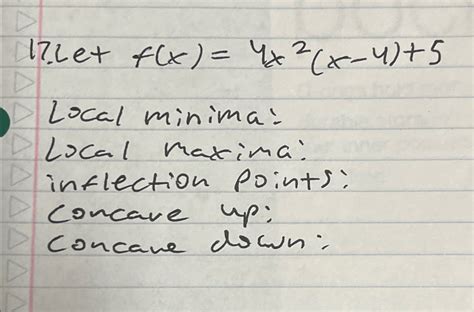 17. Let f(x) = 4x²(x-4)+5
Local minima:
Local maxima:
inflection points:
Concave up:
Concave down: